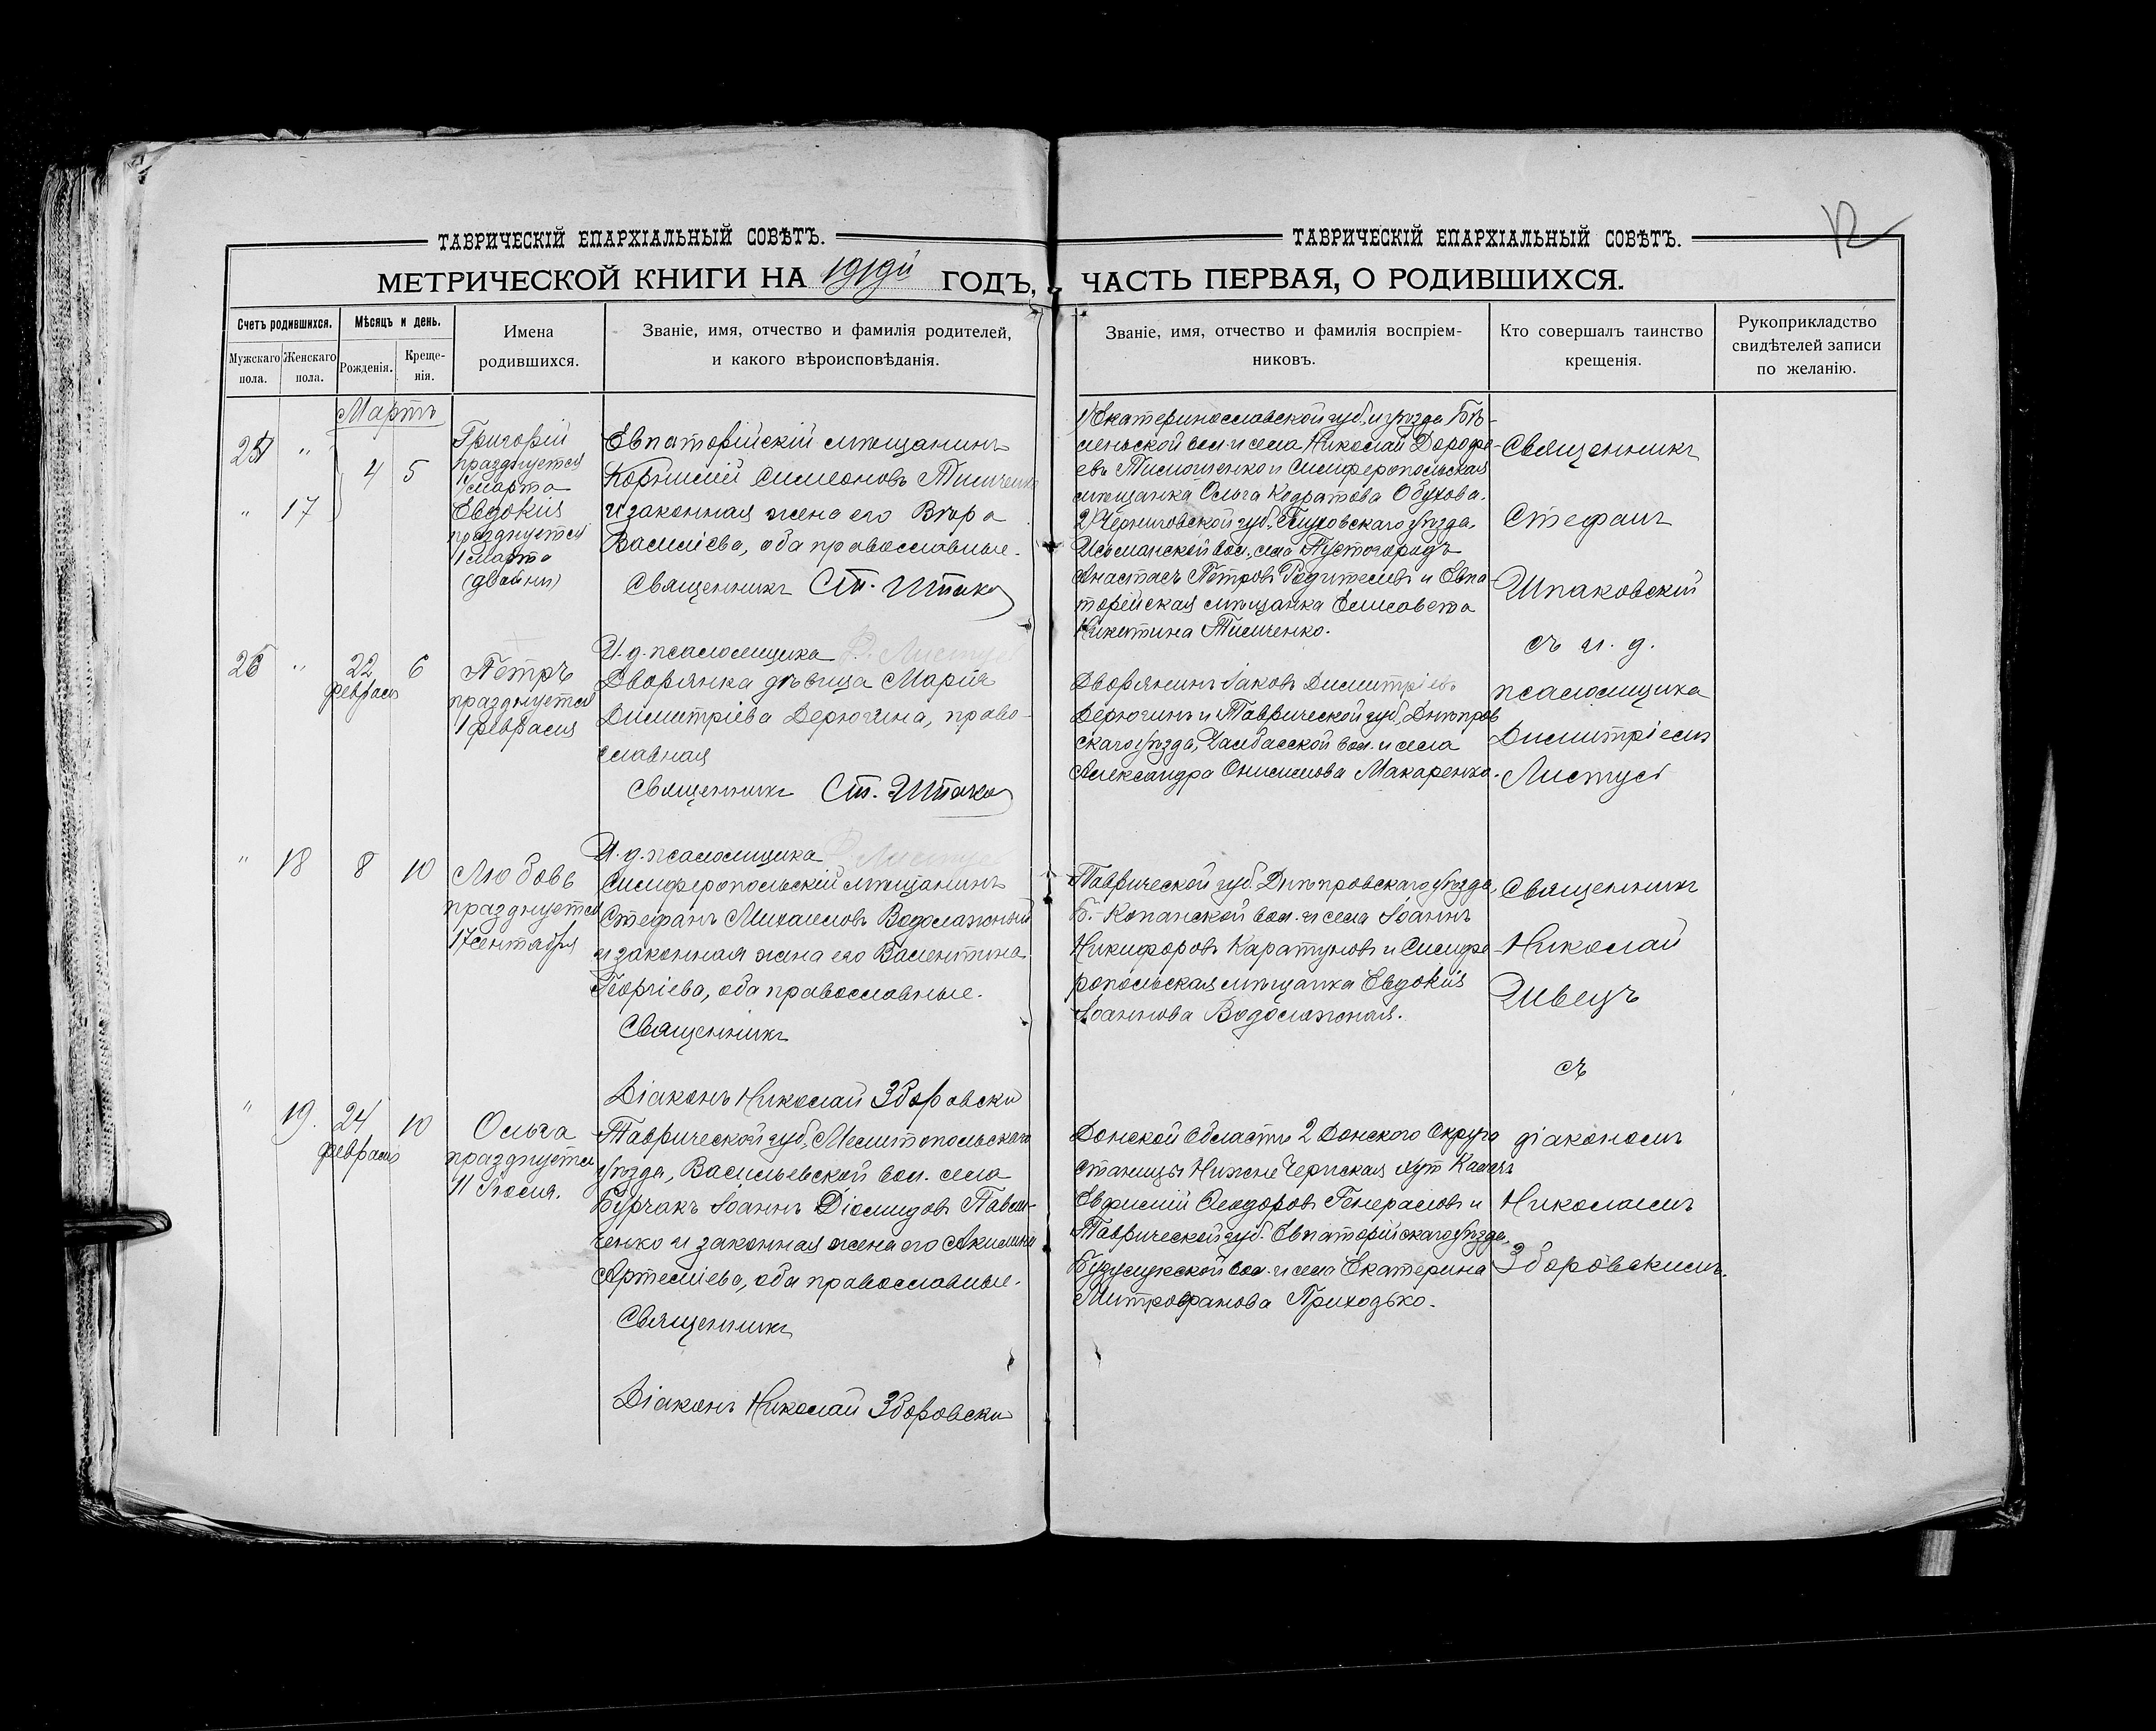 12
ТАВРИЧЕСКІЙ ЕПАРХІАЛЬНЫЙ СОВѢТЪ.
МЕТРИЧЕСКОЙ КНИГИ НА 1919й ГОДЪ,
Счетъ родившихся.
Мужскаго пола.
Женскаго пола.
Мѣсяцъ и день.
Рожденія.
Креще-
нія.
Имена
родившихся.
Званіе, имя, отчество и фамилія родителей,
и какого вѣроисповѣданія.
ТАВРИЧЕСКІЙ ЕПАРХІАЛЬНЫЙ СОВѢТЪ.
ЧАСТЬ ПЕРВАЯ, О РОДИВШИХСЯ.
Званіе, имя, отчество и фамилія воспріем-
никовъ.
Кто совершалъ таинство
крещенія.
Рукоприкладство
свидѣтелей записи
по желанію.
Мартъ
" 17
4 5
Григорій
празднуется
марта
Евдокія
празднуется
1 марта
(двойни)
Евпаторійскій мѣщанинъ
Корнилій Симеоновъ
и законная жена его Вѣра
Василіева, оба православные.
Священникъ Ст. Шпако
И. д. псаломщика
1) Екатеринославской губ. и уѣзда Бѣ-
ленской вол. и села Николай Дорофе-
евъ Тимошенко и Симферопольская
мѣщанка Ольга Кодратова Обухова.
2) Черниговской губ. Глуховскаго уѣзда,
вол. села Пустогородъ
Анастасъ Петровъ и Евпа-
торійская мѣщанка Елисавета
Никитина Тимченко.
Священникъ
Стефанъ
Шпаковскій
съ и. д.
псаломщика
Димитріемъ
Листус
" 22
февраля
6
Петръ
празднуется
1 февраля
Дворянка дѣвица Марія
Димитріева Дерюгина, право-
славная
Священникъ Ст. Шпако
И. д. псаломщика
Дворянинъ Іаковъ Димитріевъ
Дерюгинъ и Таврической губ. Днѣпров
скаго уѣзда, Чалбасской вол. и села
Александра Онисимова Макаренко.
" 18 8 10
Любовь
празднуется
17 сентября
Симферопольскій мѣщанинъ
Стефанъ Михаиловъ Водолажский
и законная жена его Валентина
Георгіева, оба православные.
Священникъ
Діаконъ Николай Зборовски
Таврической губ. Днѣпровскаго уѣзда,
Б.-Копанской вол. и села Іоаннъ
Никифоровъ Каратуновъ и Симфе-
ропольская мѣщанка Евдокія
Іоаннова Водолажская.
Священникъ
Николай
Швецъ
съ
" 19. 24
февраля
10
Ольга
празднуется
11 Іюля.
Таврической губ. Мелитопольскаго
уѣзда, Васильевской вол. села
Бурчакъ Іоаннъ Діомидовъ Павли-
ченко и законная жена его Акилина
Артеміева, оба православные.
Священникъ
Діаконъ Николай Зборовски
Донской Области 2 Донского Округа
станицы Нижне Чернская хут
Евфимій Ѳеодоровъ Генераловъ и
Таврической губ. Евпаторійскаго уѣзда,
вол. и села Екатерина
Митрофанова Приходько.
діакономъ
Николаемъ
Зборовскимъ.